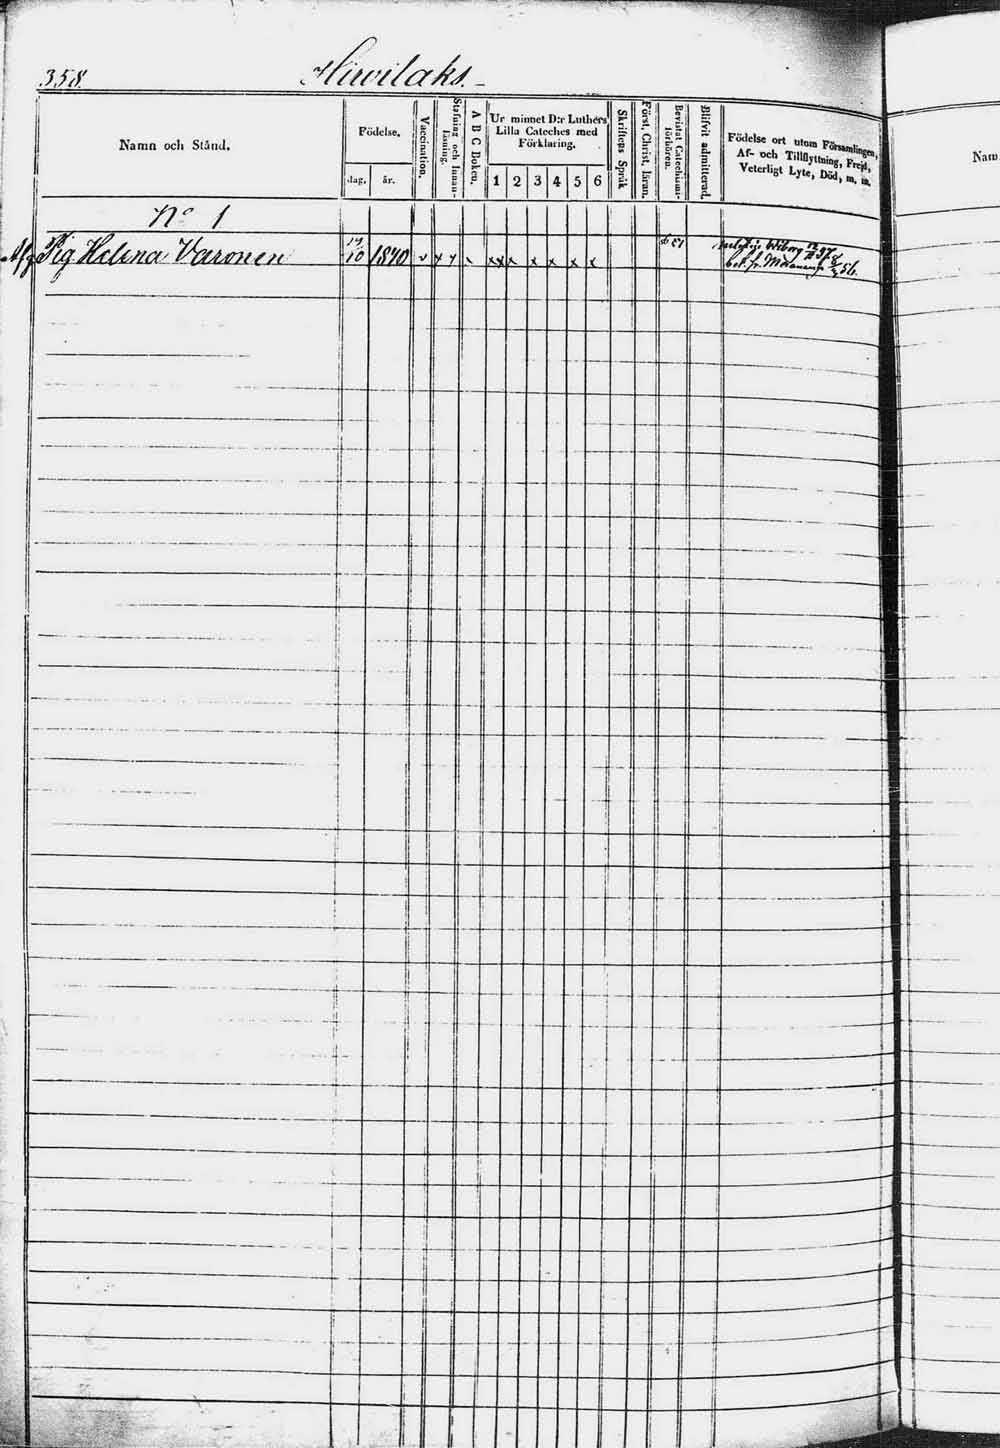 358.
Hirvilaks.
Namn och Stånd.
Födelse.
dag.
år.
Vaccination.
Stafning och Innanläsning.
A B C Boken.
Ur minnet D:r Luthers
Lilla Cateches med
Förklaring.
1 2 3 4 5 6
Skriftens Språk
Först. Christ. läran.
Bevistat Catechismi-
förhören.
Blifvit admitterad.
Födelse ort utom Församlingen,
Af- och Tillflyttning, Frejd,
Veterligt Lyte, Död, m. m.
Nam
No 1
Afg Pig Helena Varonen 10 1840 v x x x x x x x x x Wiborg
bet. fr. 56.